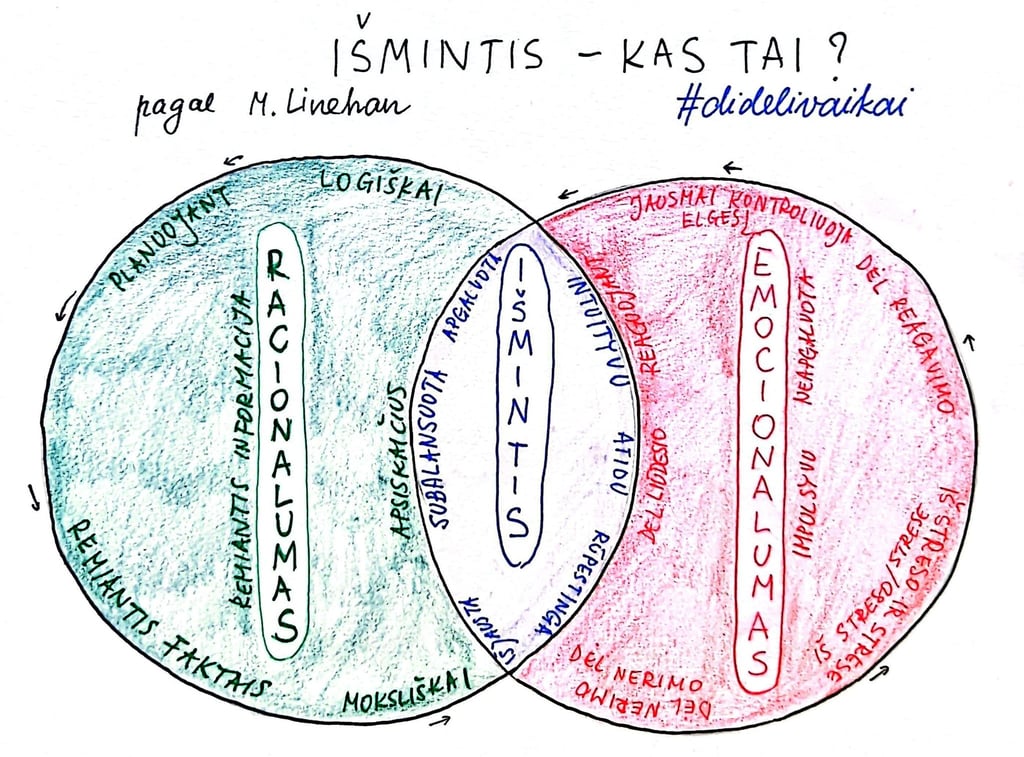 IŠMINTIS – KAS TAI?
pagal M. Linehan
#didelivaikai
LOGIŠKAI
PLANUOJANT
RACIONALUMAS
REMIANTIS INFORMACIJA
APSISKAIČIUS
REMIANTIS FAKTAIS
MOKSLIŠKAI
IŠMINTIS
APGALVOTA
SUBALANSUOTA
ĮSIJAUSTA
INTUITYVU
ATIDU
RŪPESTINGA
JAUSMAI KONTROLIUOJA
ELGESĮ
EMOCIONALUMAS
REAGUOJANT
DĖL LIŪDESIO
NEAPGALVOTA
IMPULSYVU
DĖL REAGAVIMO
IŠ STRESO/STRESE
IŠ STRESO IR STRESE
DĖL NERIMO
DĖL NERIMO